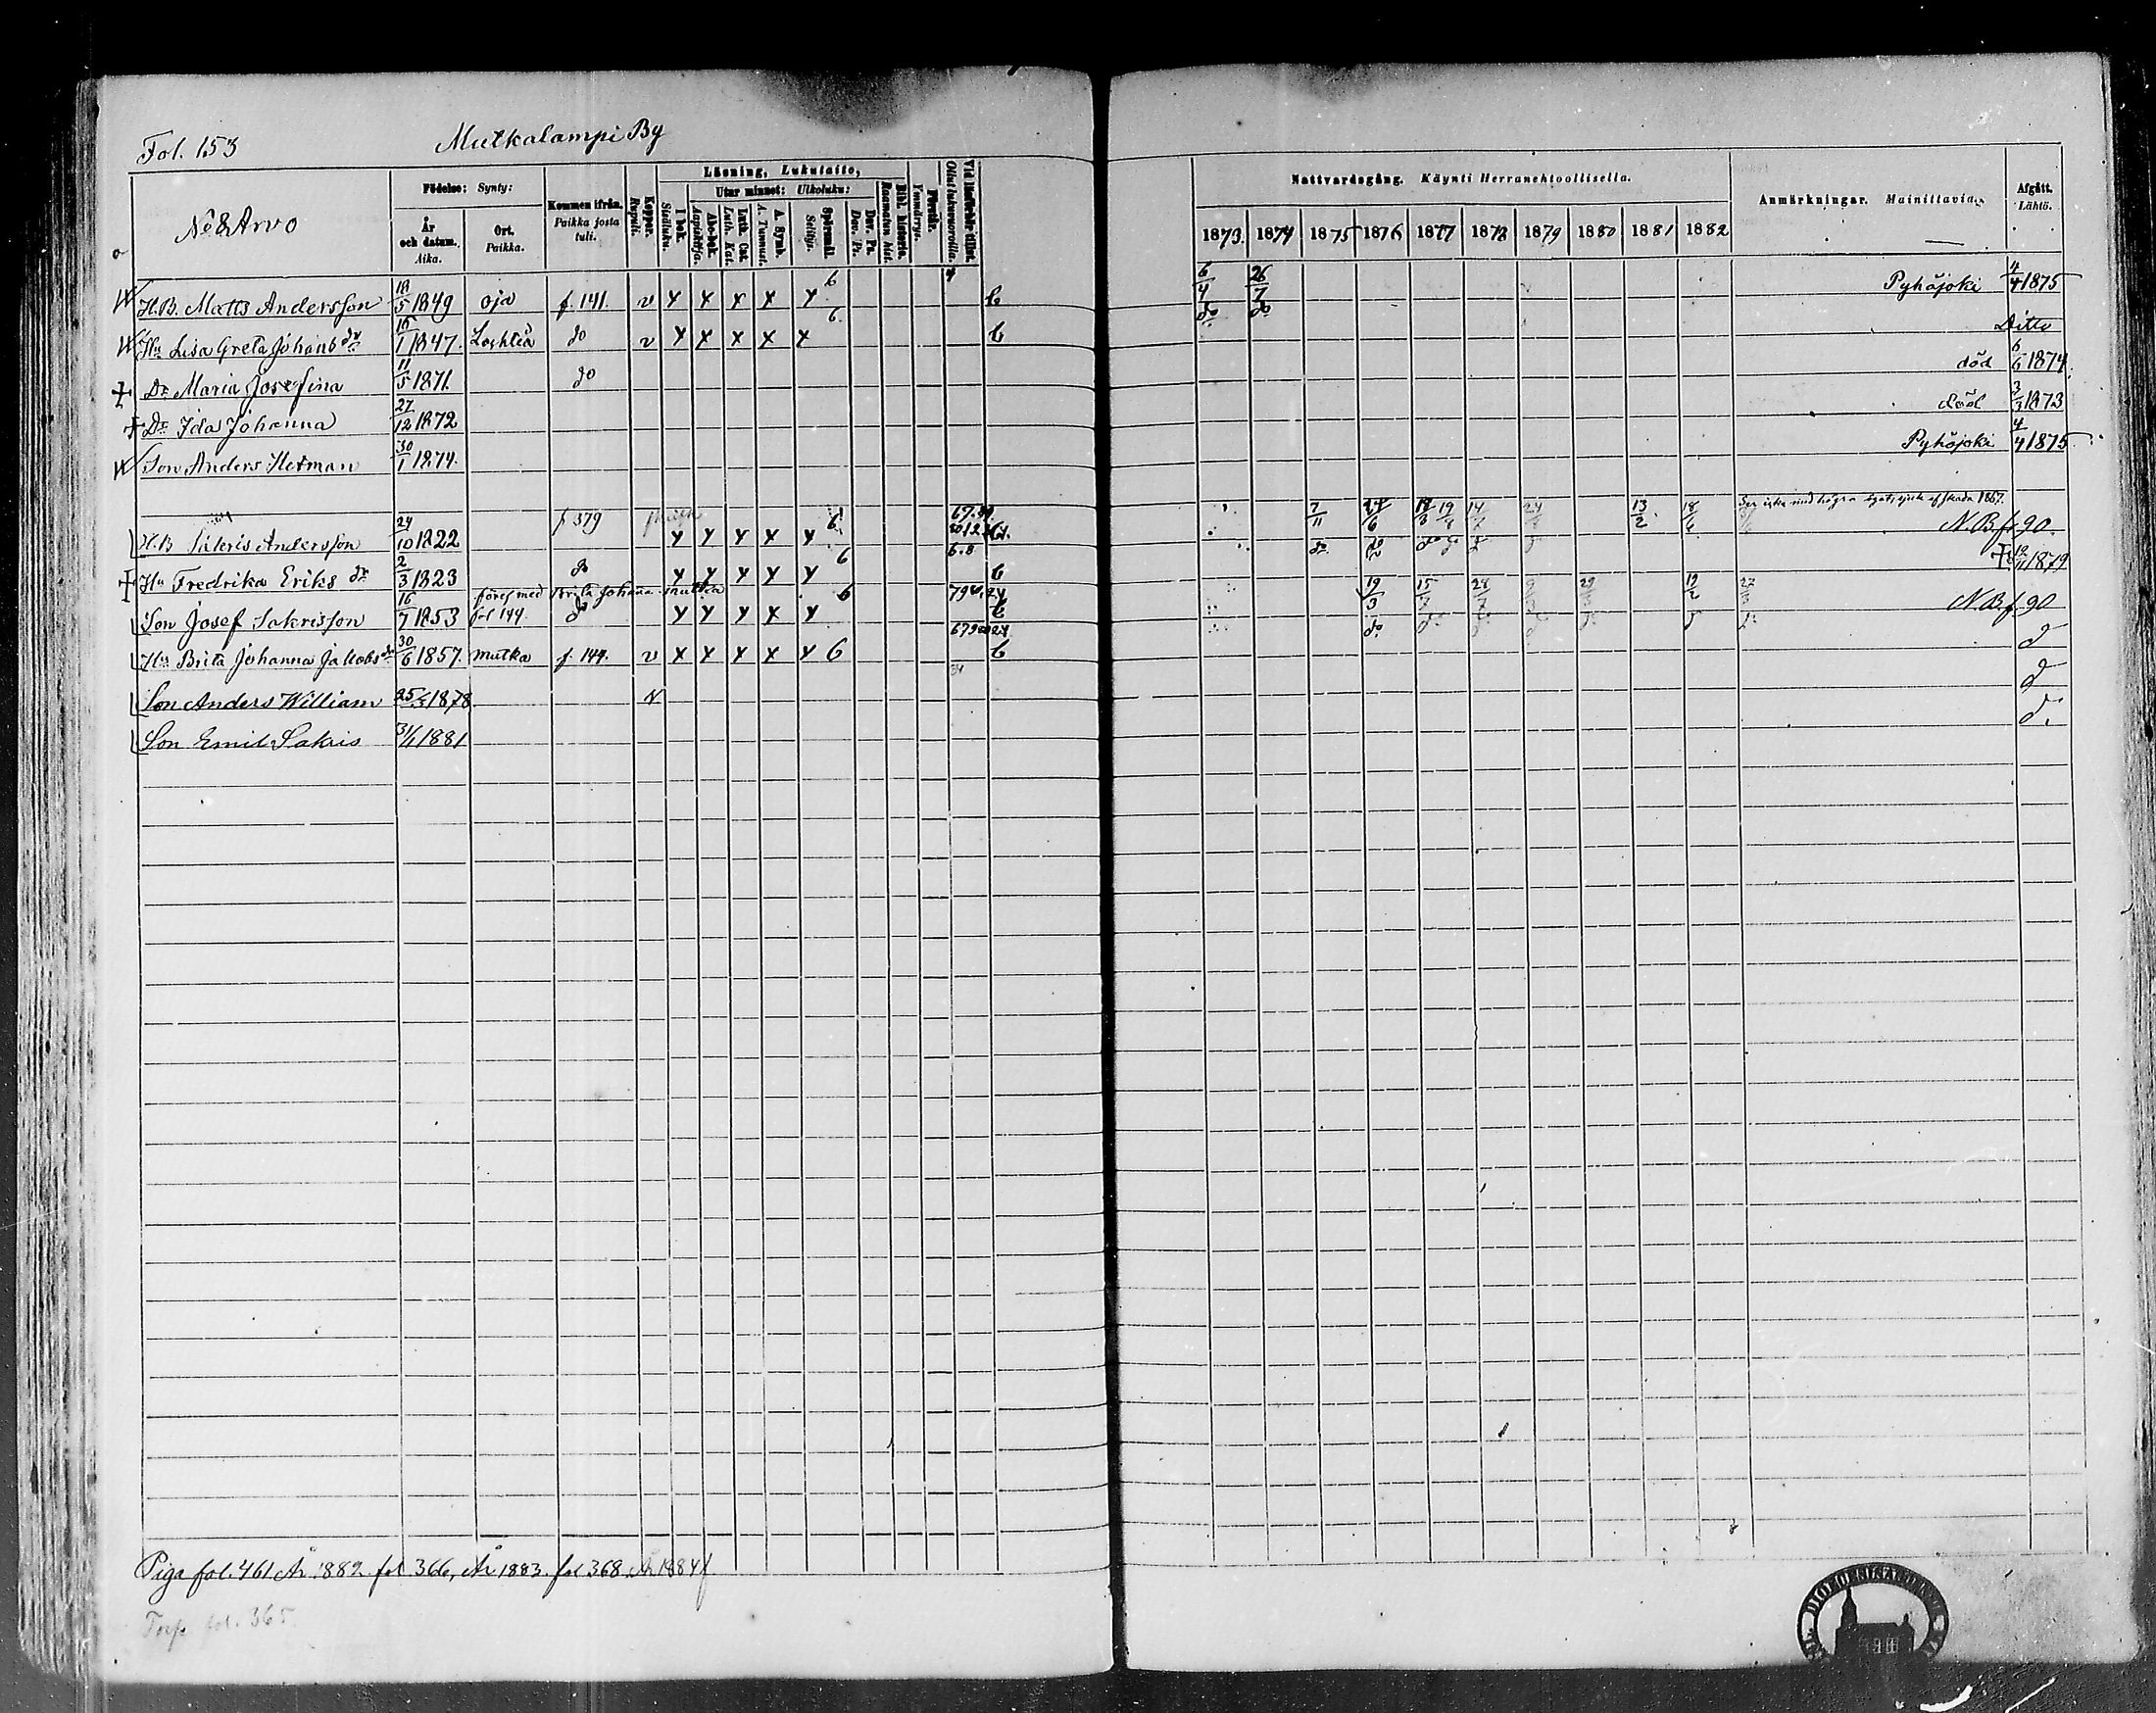 Fol. 153 Mutkalampi By
Födelse: Synty:
Läsning, Lukutaito,
Utur minnet: Ulkoluku:
Nattvardsgång. Käynti Herranehtoollisella.
Anmärkningar. Mainittavia.
Afgått. Lähtö.
No 8 Arvo
År och datum. Aika.
Ort. Paikka.
Kommen ifrån. Paikka josta tuli.
Koppor. Rupuli.
I bok. Sisäluku.
Abc-bok. Aapiskirja.
Luth. Cat. Luth. Kat.
A. Symb. A. Tunnust.
Spörsmål. Selitys.
Dav. Ps. Dav. Ps.
Bibl. historie. Raamatun hist.
Förstår. Ymmärrys.
Vid läseförhör tillst. Ollut lukuvuoroilla.
1873. 1874 1875 1876 1877 1878 1879 1880 1881 1882
H.B. Matts Andersson 18/5 1849 Oja f. 141. v x x x x x 6 b 6/4 26/7 Pyhäjoki 4/4 1875
Hu Lisa Greta Johansdr 16/1 1847. Lochteå do v x x x x x 6 b do do Ditto
Dr Maria Josefina 11/5 1871. do död 6/6 1874
Dr Ida Johanna 27/12 1872 död 3/3 1873
Son Anders Herman 30/1 1874. Pyhäjoki 4/4 1875
H.B. Sakeris Andersson 24/10 1822 f 379 x x x x x 6 7/11 24/6 18/3 19/8 14/7 13/2 18/6 N.B.f. 90.
Hu Fredrika Eriks dr 2/3 1823 do x x x x x 6 6.8 b do do do do + 12/11 1879
föres med Brita Johana Mutka
Son Josef Sakrisson 16/7 1853 fol 144 do x x x x x 6 b 19/3 15/7 28/7 19/2 N.B.f. 90
Hu Brita Johanna Jakobsdr 30/6 1857. Mutka f. 144. v x x x x x 6 b do d
Son Anders William 25/5 1878 N d
Son Emil Sakris 31/1 1881 d.
Piga fol. 461 År 1882 fol 366, År 1883. fol 368 År 1884 f
Torp fol. 365.